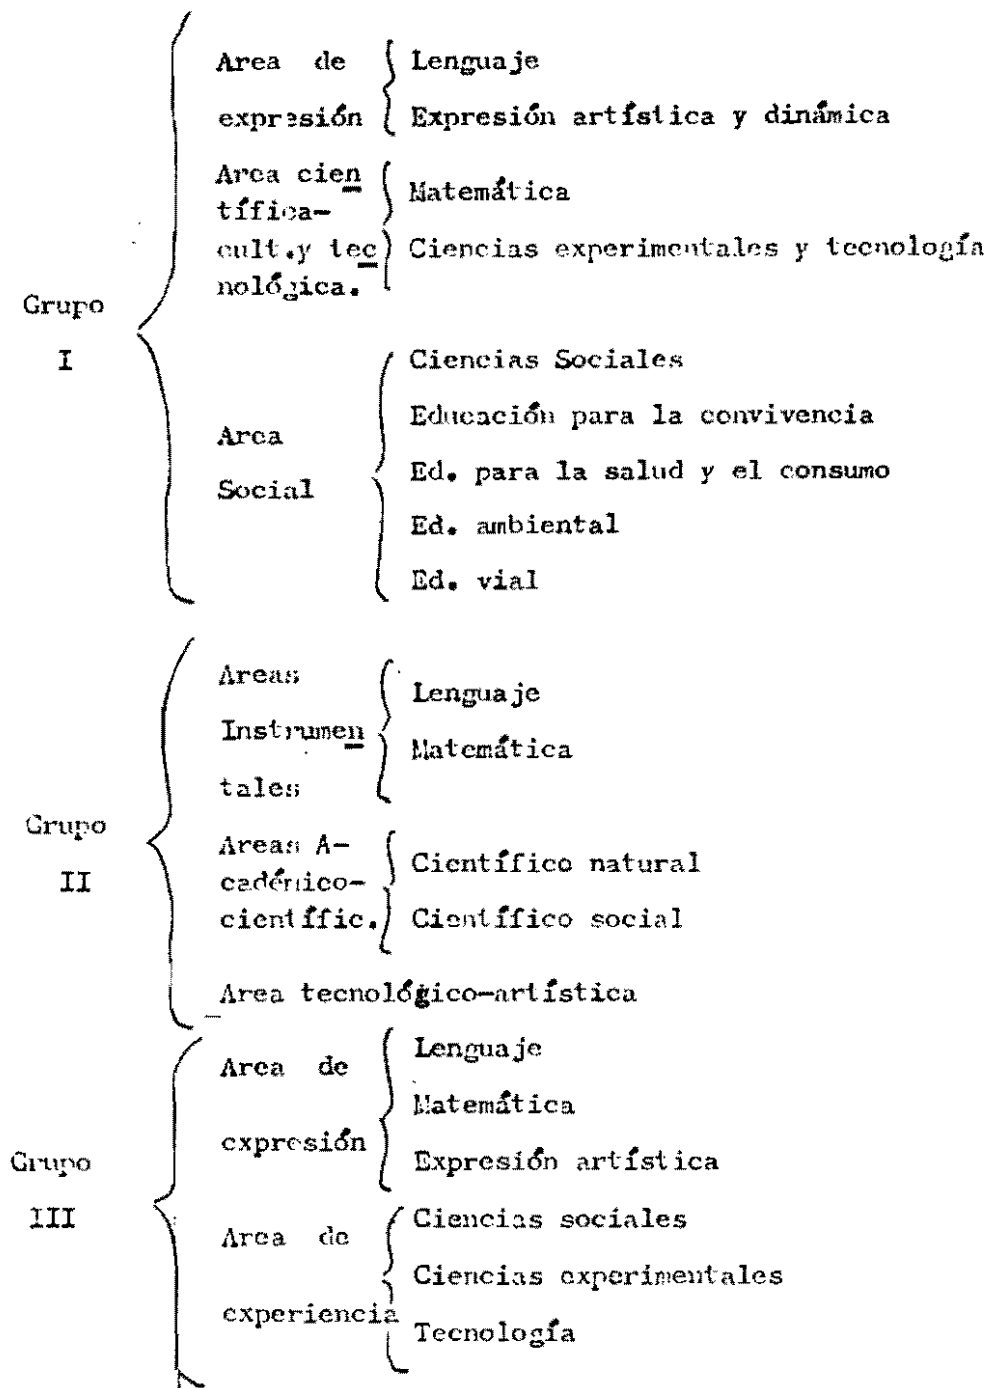 Grupo
I
Area de
expresión
Lenguaje
Expresión artística y dinámica
Area cien
tífica-
cult.y tec
nológica.
Matemática
Ciencias experimentales y tecnología
Area
Social
Ciencias Sociales
Educación para la convivencia
Ed. para la salud y el consumo
Ed. ambiental
Ed. vial
Grupo
II
Areas
Instrumen
tales
Lenguaje
Matemática
Areas A-
cadémico-
científic.
Científico natural
Científico social
Area tecnológico-artística
Grupo
III
Area de
expresión
Lenguaje
Matemática
Expresión artística
Area de
experiencia
Ciencias sociales
Ciencias experimentales
Tecnología